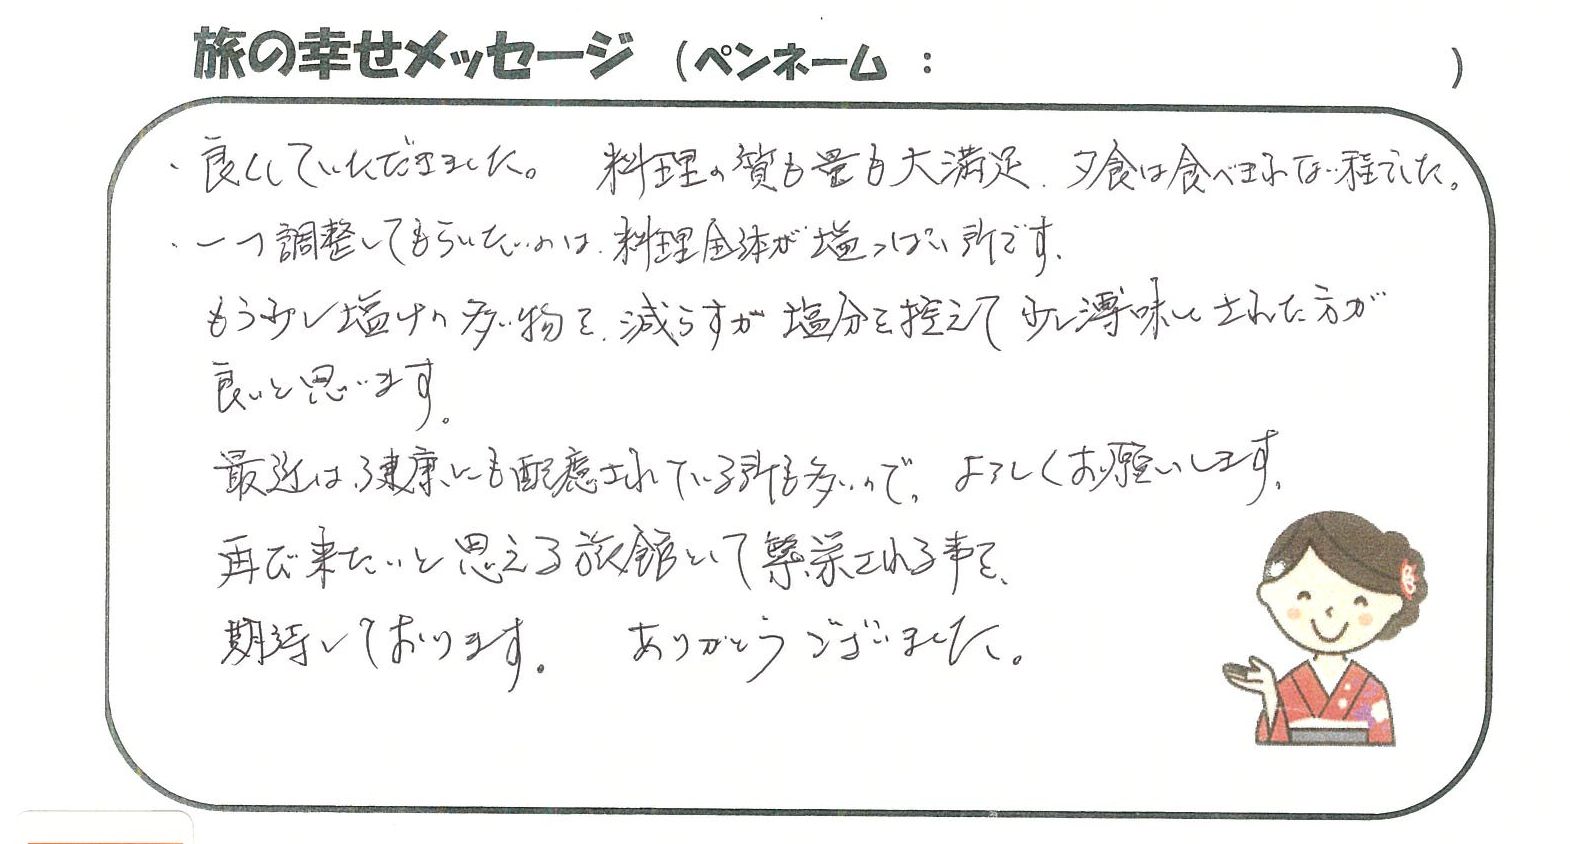 旅の幸せメッセージ (ペンネーム : )
・良くしていただきました。 料理の質も量も大満足、夕食は食べきれない程でした。
・一つ調整してもらいたいのは、料理全体が塩っぱい所です。
もう少し塩けの多い物を、減らすか塩分を控えて少し薄味にされた方が
良いと思います。
最近は健康にも配慮されている所も多いので、よろしくお願いします。
再び来たいと思える旅館として繁栄される事を、
期待しております。 ありがとうございました。